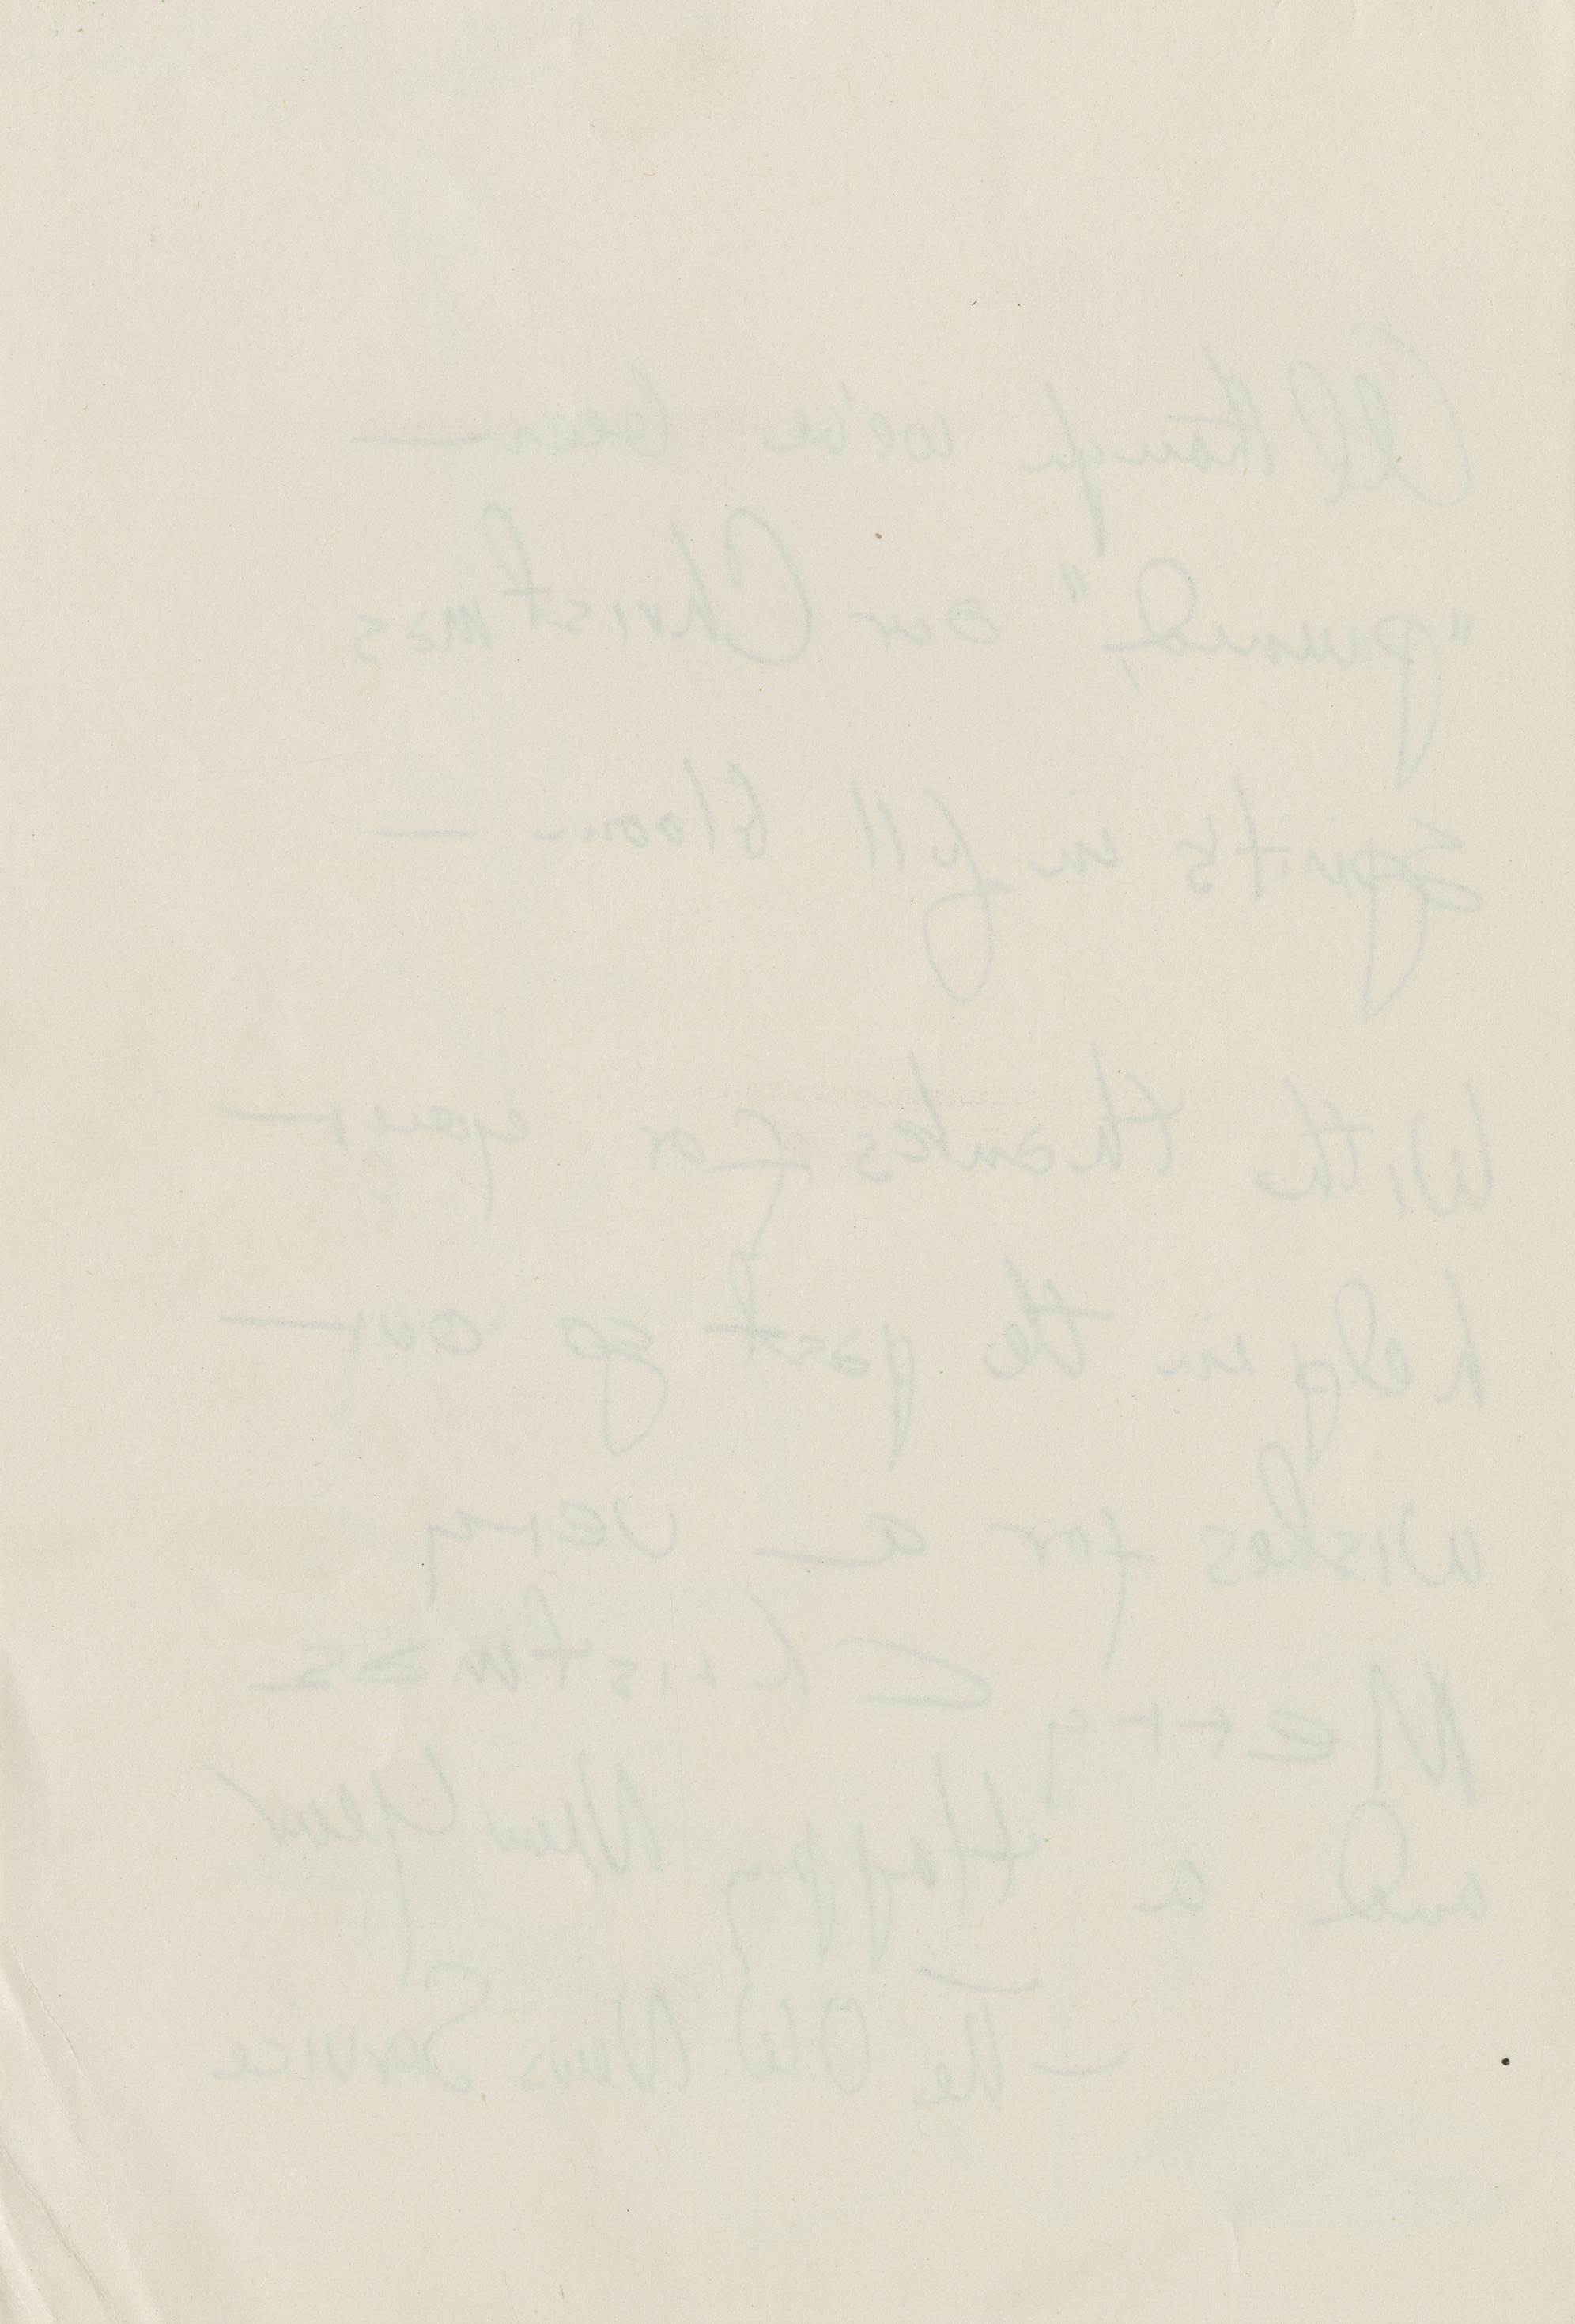 Although we've been —
"pruned," our Christmas
Spirit's in full bloom —
With thanks for your —
help in the past go our —
wishes for a very
Merry Christmas
and a Happy New Year
— The OWI News Service